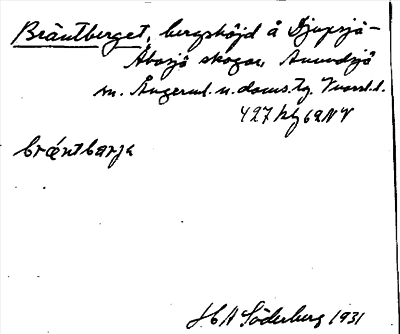 Bräntberget, bergshöjd å Djupsjö-
Åbosjö skogar, Anundsjö
sn. Ångerml. n. doms.
427
bräntbarja
H A Söderberg 1931